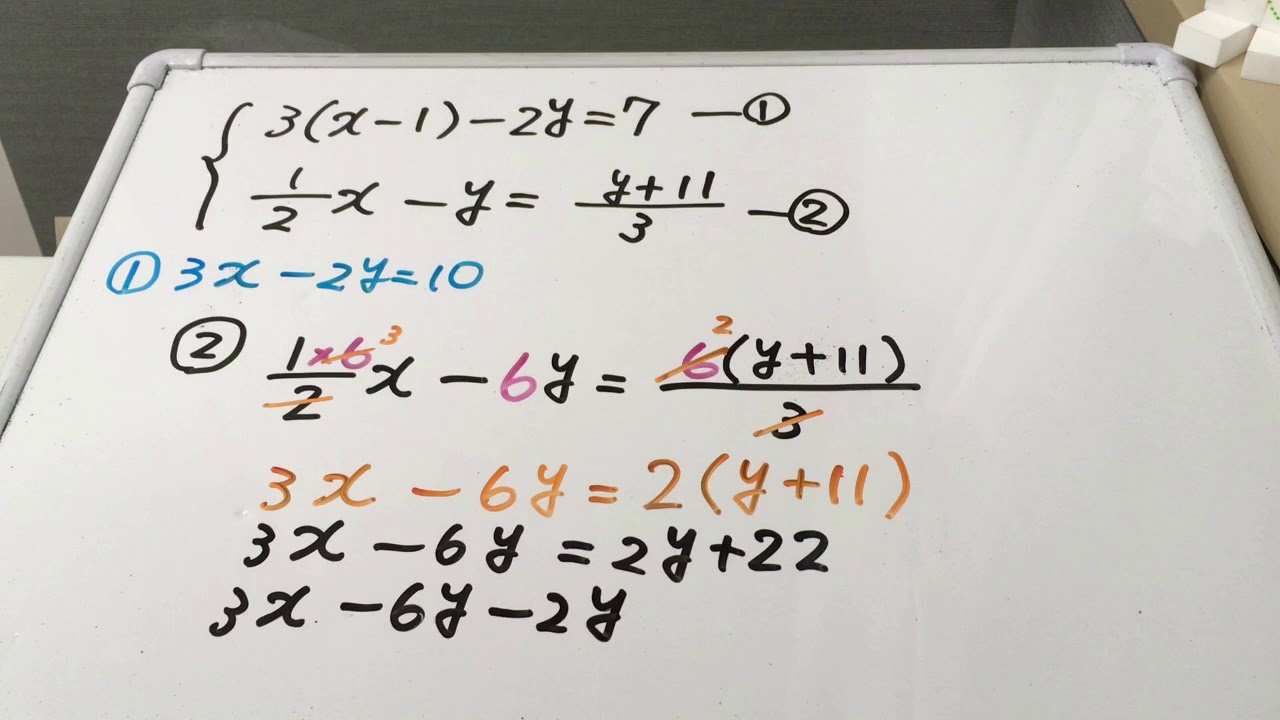 3(x-1)-2y=7 —①
1/2 x - y = (y+11)/3 —②
① 3x-2y=10
② (1×6)/2 3 x - 6y = 6 2 (y+11)/3
3x - 6y = 2(y+11)
3x - 6y = 2y+22
3x - 6y - 2y